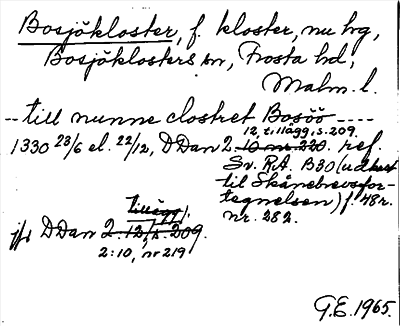 Bosjökloster, f. kloster, nu hg,
Bosjöklosters sn, Frosta hd,
Malm. l.
-- till nunne clostret Bosöö ----
12, tillägg, s. 209.
1330 23/6 el. 22/12, DDan 2. 10 nr 220. ref.
Sv. R.A. B30 (udkast
til Skånebrevsfor-
tegnelsen) f. 48r.
nr. 282.
tillägg).
jfr DDan 2.12, s. 209.
2:10, nr 219
G.E. 1965.